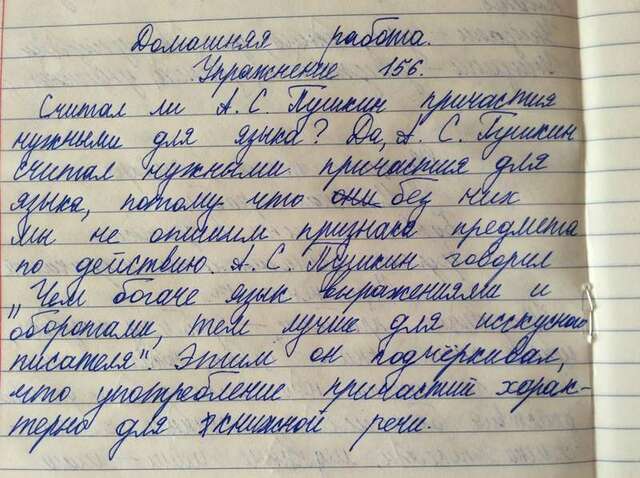 Домашняя работа.
Упражнение 156.
Считал ли А. С Пушкин причастия
нужными для языка? Да, А. С. Пушкин
считал нужными причастия для
языка, потому что они без них
мы не опишим признака предмета
по действию. А. С. Пушкин говорил
„Чем богаче язык выражениями и
оборотами, тем лучше для исскусного
писателя". Этим он подчёркивал,
что употребление причастий харак-
терно для книжной речи.